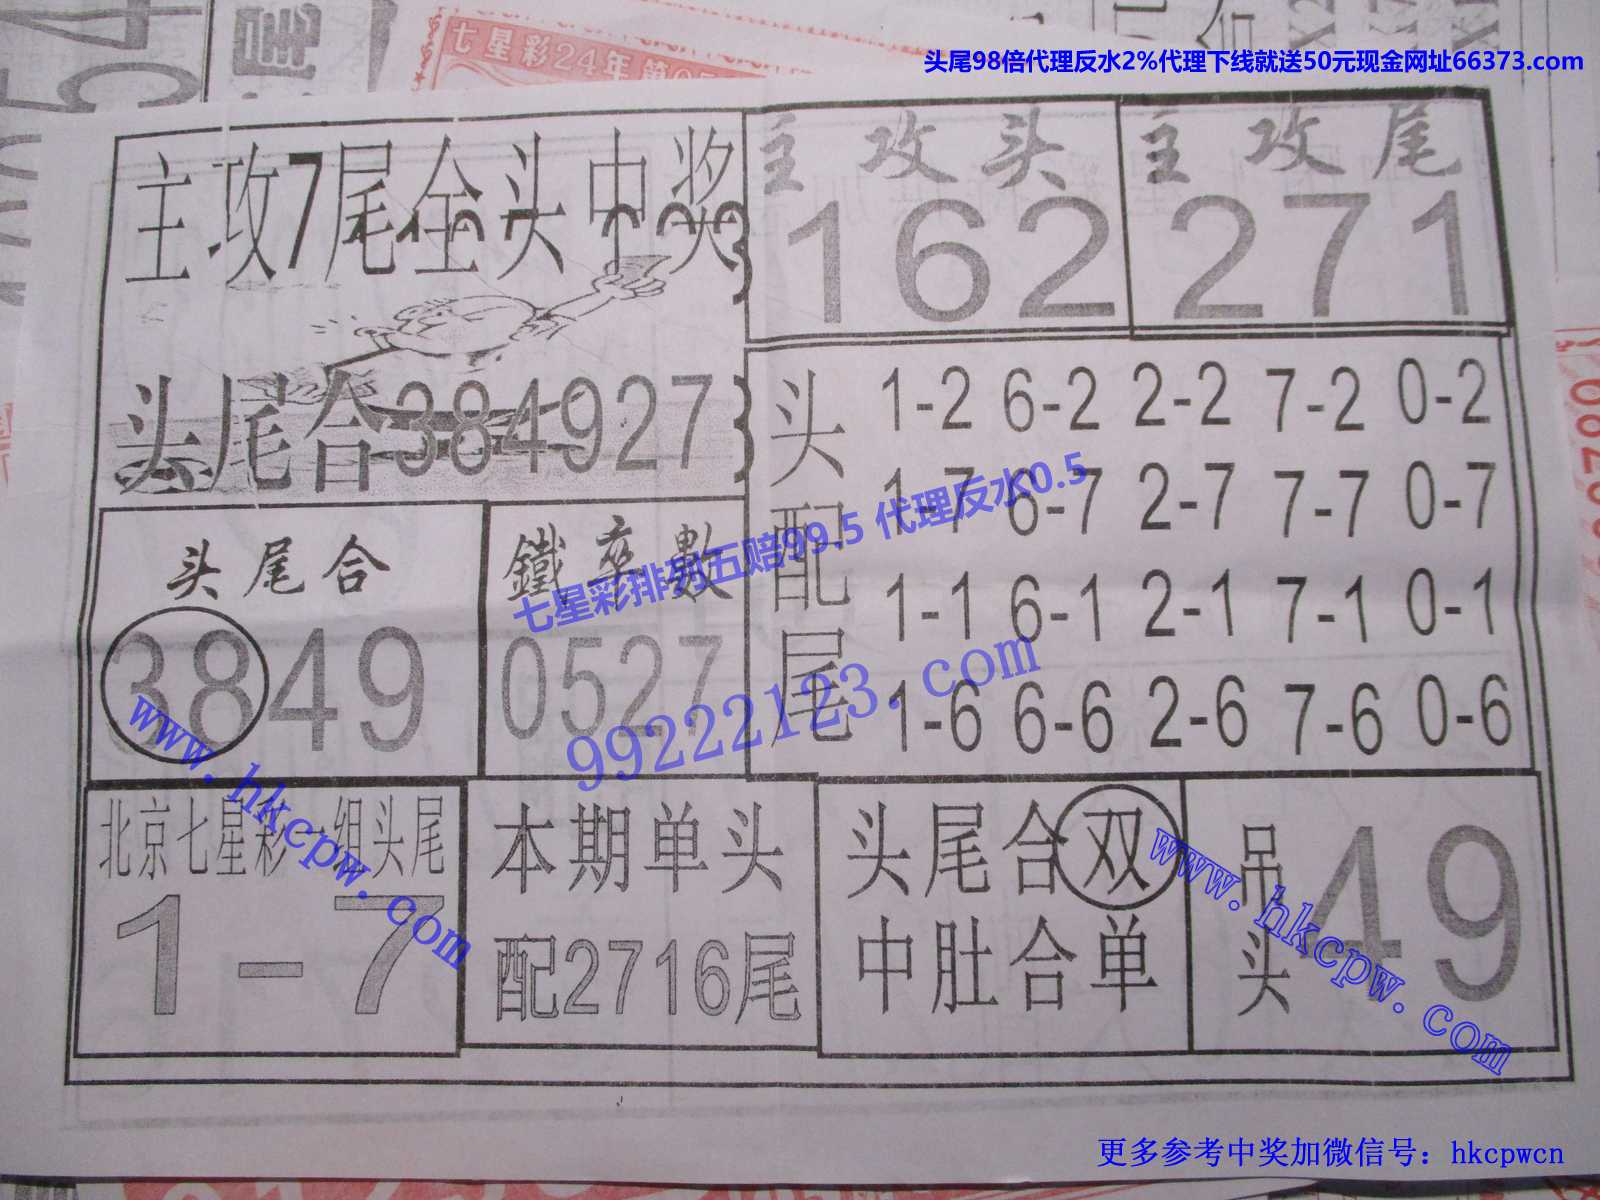 七星彩24年第
头尾98倍代理反水2%代理下线就送50元现金网址66373.com
主攻7尾全头中奖
头尾合384927
主攻头
162
主攻尾
271
头配尾
1-2 6-2 2-2 7-2 0-2
1-7 6-7 2-7 7-7 0-7
1-1 6-1 2-1 7-1 0-1
1-6 6-6 2-6 7-6 0-6
头尾合
3849
鐵卒數
0527
七星彩排列五赔99.5 代理反水0.5
99222123.com
www.hkcpw.com
北京七星彩一组头尾
1-7
本期单头
配2716尾
头尾合双
中肚合单
吊头
49
www.hkcpw.com
更多参考中奖加微信号：hkcpwcn